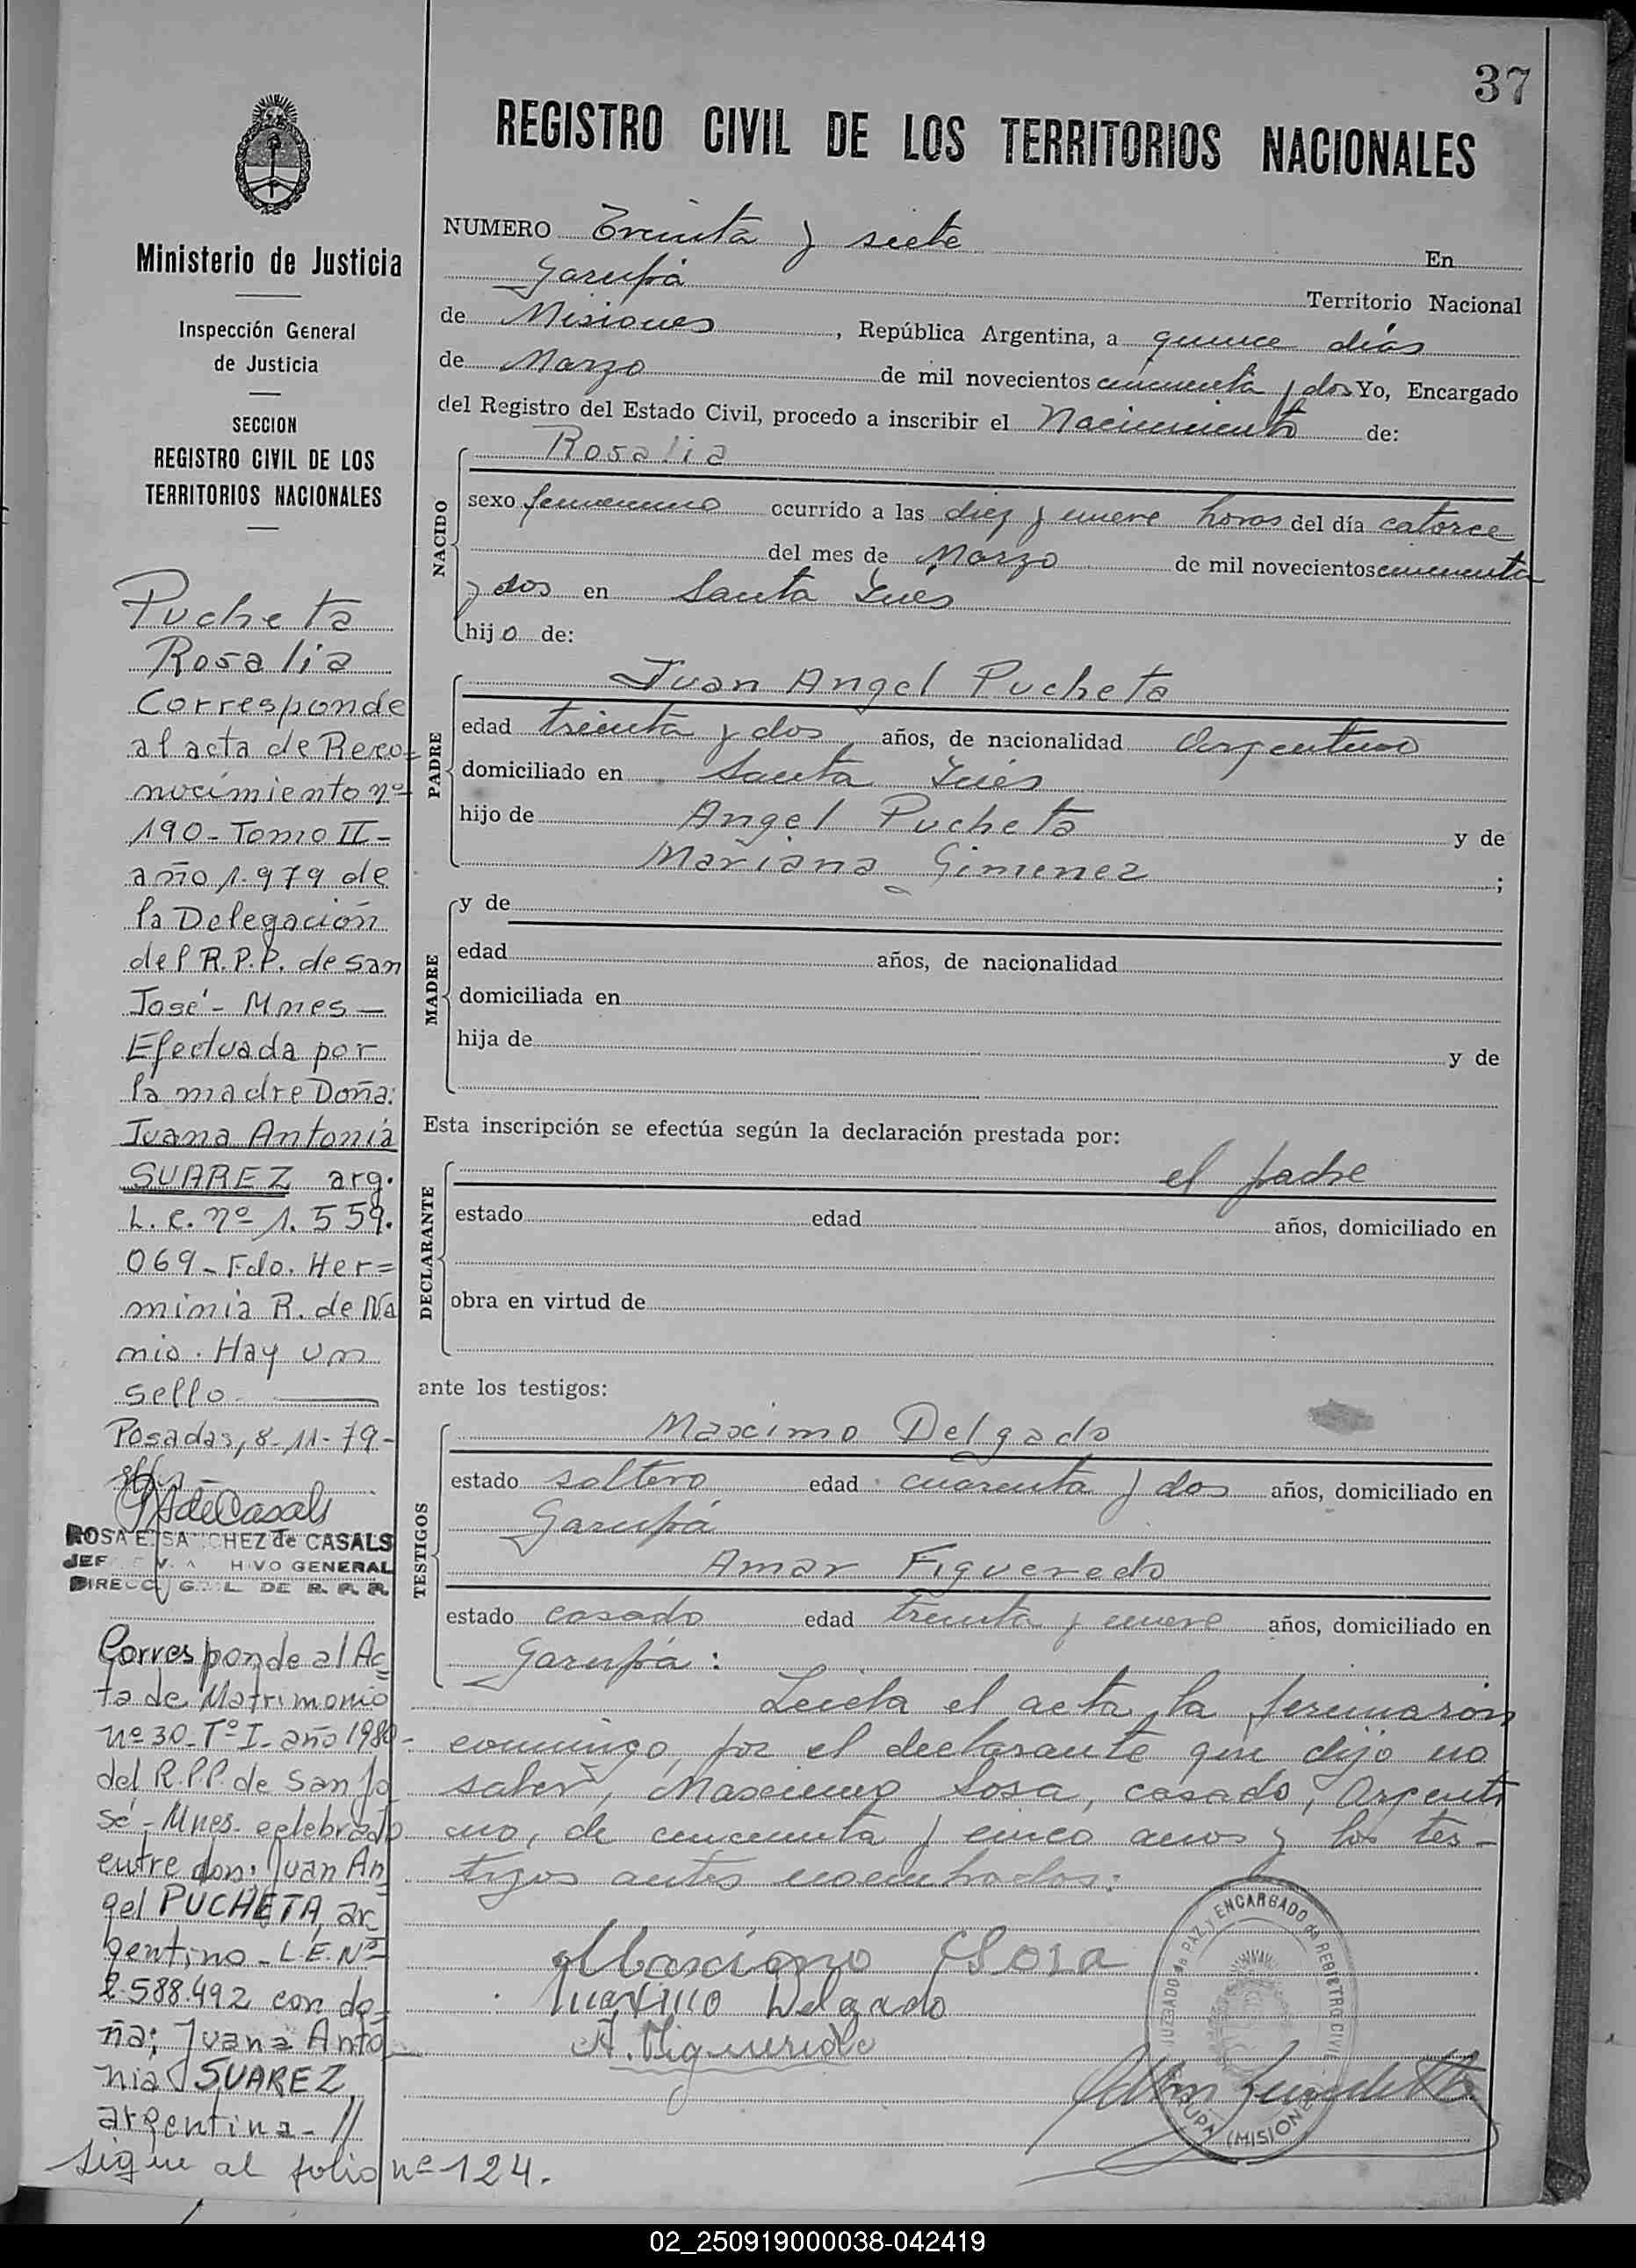 37
REGISTRO CIVIL DE LOS TERRITORIOS NACIONALES
Ministerio de Justicia
Inspección General
de Justicia
SECCION
REGISTRO CIVIL DE LOS
TERRITORIOS NACIONALES
Pucheta
Rosalia
Corresponde
al acta de Reco-
nocimiento nº
190 - Tomo II -
año 1.979 de
la Delegación
del R.P.P. de San
José - Mnes -
Efectuada por
la madre Doña:
Juana Antonia
SUAREZ arg.
L. C. nº 1. 559.
069 - Fdo. Her=
minia R. de Na
mio. Hay un
sello
Posadas, 8-11-79-
ROSA E. SANCHEZ de CASALS
HIVO GENERAL
DE R. P. P.
Corresponde al Ac
ta de Matrimonio
nº 30 - Tº I - año 1980 -
del R.P.P. de San Jo
sé - Mnes - celebrado
entre don: Juan An
gel PUCHETA, ar
gentino - L.E. Nº
2.588.492 con do-
ña; Juana Anto
nia SUAREZ,
argentina - //
sigue al folio nº 124.
NUMERO Treinta y siete En
Garupá Territorio Nacional
de Misiones, República Argentina, a quince días
de Marzo de mil novecientos cincuenta y dos Yo, Encargado
del Registro del Estado Civil, procedo a inscribir el Nacimiento de:
NACIDO
Rosalia
sexo femenino ocurrido a las diez y nueve horas del día catorce
del mes de Marzo de mil novecientos cincuenta
y dos en Santa Inés
hijo de:
PADRE
Juan Angel Pucheta
edad treinta y dos años, de nacionalidad Argentino
domiciliado en Santa Inés
hijo de Angel Pucheta y de
Mariana Gimenez ;
MADRE
y de
edad años, de nacionalidad
domiciliada en
hija de y de
Esta inscripción se efectúa según la declaración prestada por:
DECLARANTE
el padre
estado edad años, domiciliado en
obra en virtud de
ante los testigos:
TESTIGOS
Maximo Delgado
estado soltero edad cuarenta y dos años, domiciliado en
Garupá
Amar Figueredo
estado casado edad treinta y nueve años, domiciliado en
Garupá:
Leida el acta, la firmaron
conmigo, por el declarante que dijo no
saber, Maximo Sosa, casado, Argenti
no, de cincuenta y cinco anos y los tes-
tigos antes nombrados:
Maximo Sosa
Maximo Delgado
A. Figueredo
JUZGADO de PAZ y ENCARGADO de REGISTRO CIVIL
GARUPÁ (MISIONES)
02_250919000038-042419